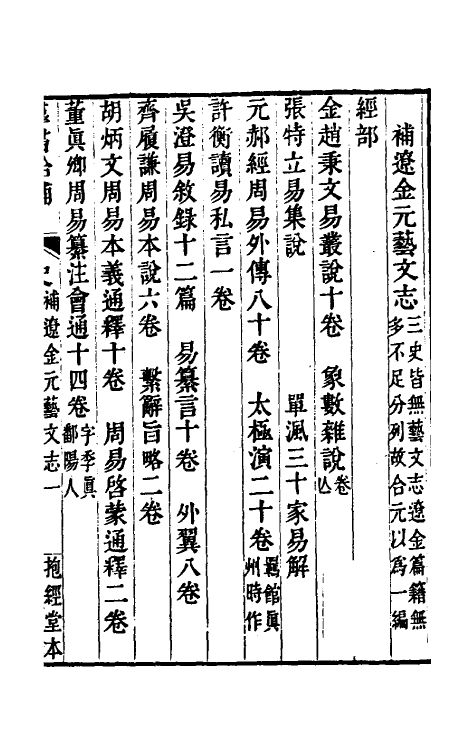 補遼金元藝文志三史皆無藝文志遼金篇籍無多不足分列故合元以爲一編
經部
金趙秉文易叢說十卷　象數雜說卷亾
張特立易集說　單渢三十家易解
元郝經周易外傳八十卷　太極演二十卷羈館眞州時作
許衡讀易私言一卷
吳澄易敘錄十二篇　易纂言十卷　外翼八卷
齊履謙周易本說六卷　繫辭旨略二卷
胡炳文周易本義通釋十卷　周易啓蒙通釋二卷
董眞卿周易纂注會通十四卷字季眞鄱陽人
羣書拾補　史補遼金元藝文志一　抱經堂本